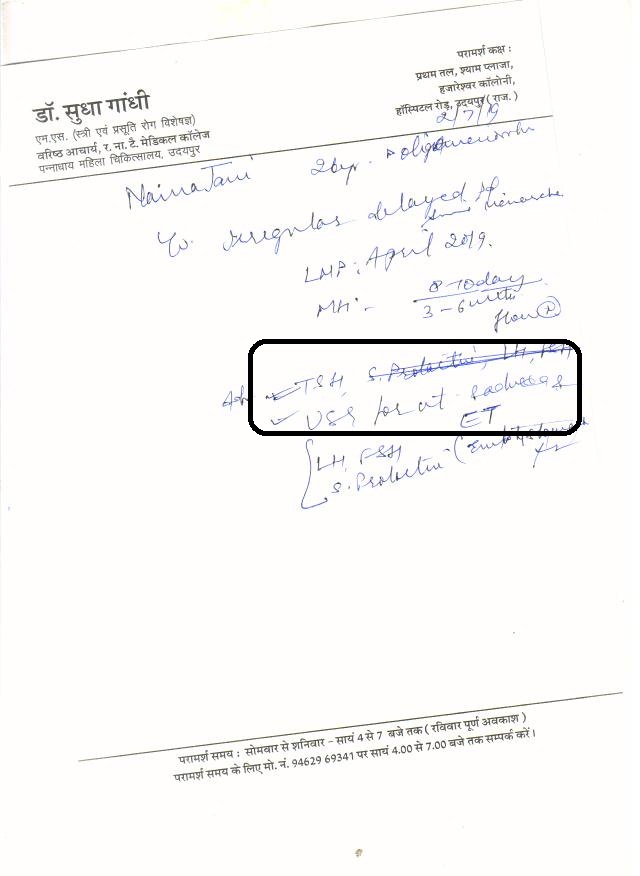 परामर्श कक्ष :
प्रथम तल, श्याम प्लाजा,
हजारेश्वर कॉलोनी,
हॉस्पिटल रोड़, उदयपुर ( राज. )
डॉ. सुधा गांधी
एम.एस. (स्त्री एवं प्रसूति रोग विशेषज्ञ)
वरिष्ठ आचार्य, र. ना. टै. मेडिकल कॉलेज
पन्नाधाय महिला चिकित्सालय, उदयपुर
2/7/19
Naina Jani 26yr.
irregular delayed
menarche
LMP : April 2019.
MH -
3-6
flow
TSH, S. Prolactin, LH, FSH
USG for ut
ET
LH, FSH
S. Prolactin
परामर्श समय : सोमवार से शनिवार - सायं 4 से 7 बजे तक ( रविवार पूर्ण अवकाश )
परामर्श समय के लिए मो. नं. 94629 69341 पर सायं 4.00 से 7.00 बजे तक सम्पर्क करें।